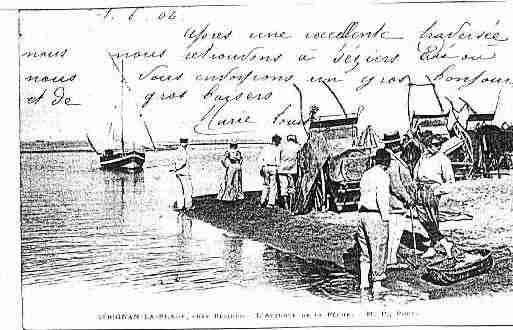 1. 6. 02
Après une excellente traversée
nous nous retrouvons à Béziers
nous vous envoyons un gros bonjour
et de gros baisers
Marie Louise
SÉRIGNAN-LA-PLAGE, PRÈS BÉZIERS. L'ARRIVÉE DE LA PÊCHE.